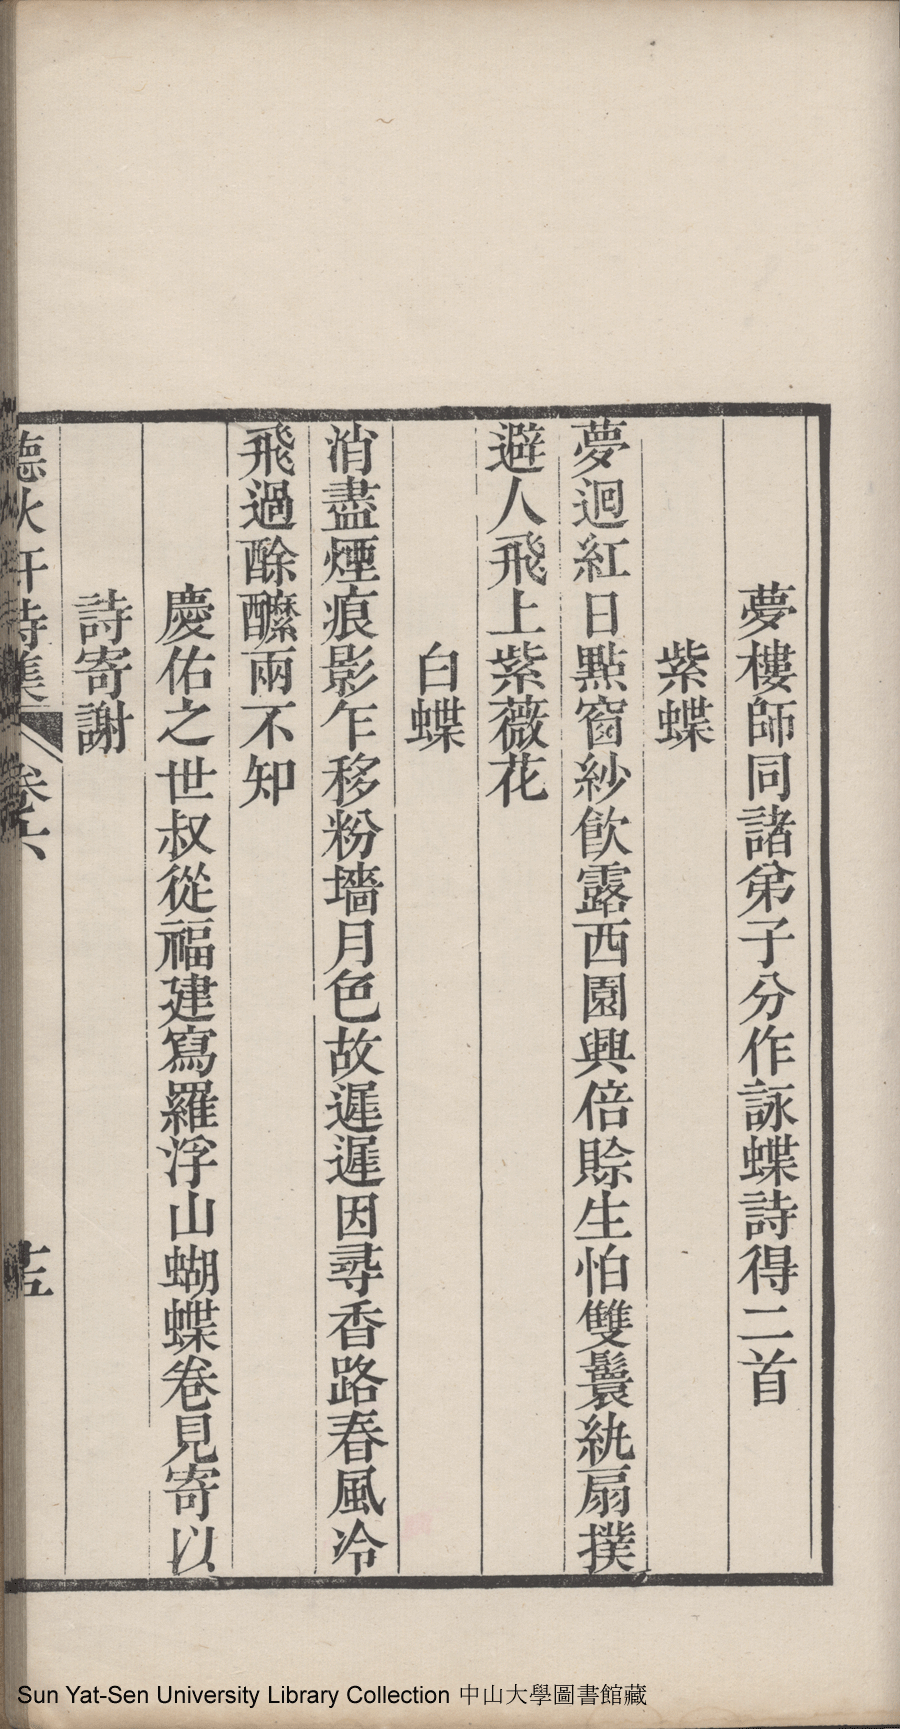 夢樓師同諸弟子分作詠蝶詩得二首
紫蝶
夢迴紅日點窗紗飲露西園興倍賒生怕雙鬟紈扇撲
避人飛上紫薇花
白蝶
消盡煙痕影乍移粉墻月色故遲遲因尋香路春風冷
飛過酴醿兩不知
慶佑之世叔從福建寫羅浮山蝴蝶卷見寄以
詩寄謝
聽秋軒詩集 卷六 十五
Sun Yat-Sen University Library Collection 中山大學圖書館藏